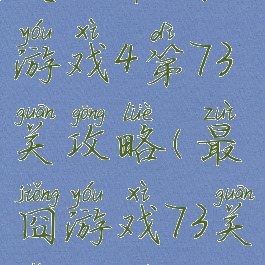 yóu xì dì
游戏4第73
guān gōng lüè zuì
关攻略(最
jiǒng yóu xì guān
囧游戏73关